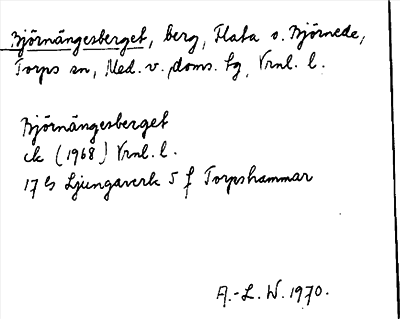 Björnängesberget, berg, Flata o. Björnede,
Torps sn, Med. v. doms. tg, Vrnl. l.
Björnängesberget
ek (1968) Vrnl. l.
17 G Ljungaverk 5 f Torpshammar
A.-L. W. 1970.